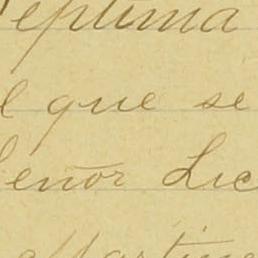 eptima
l que se
Señor Lic
Martine